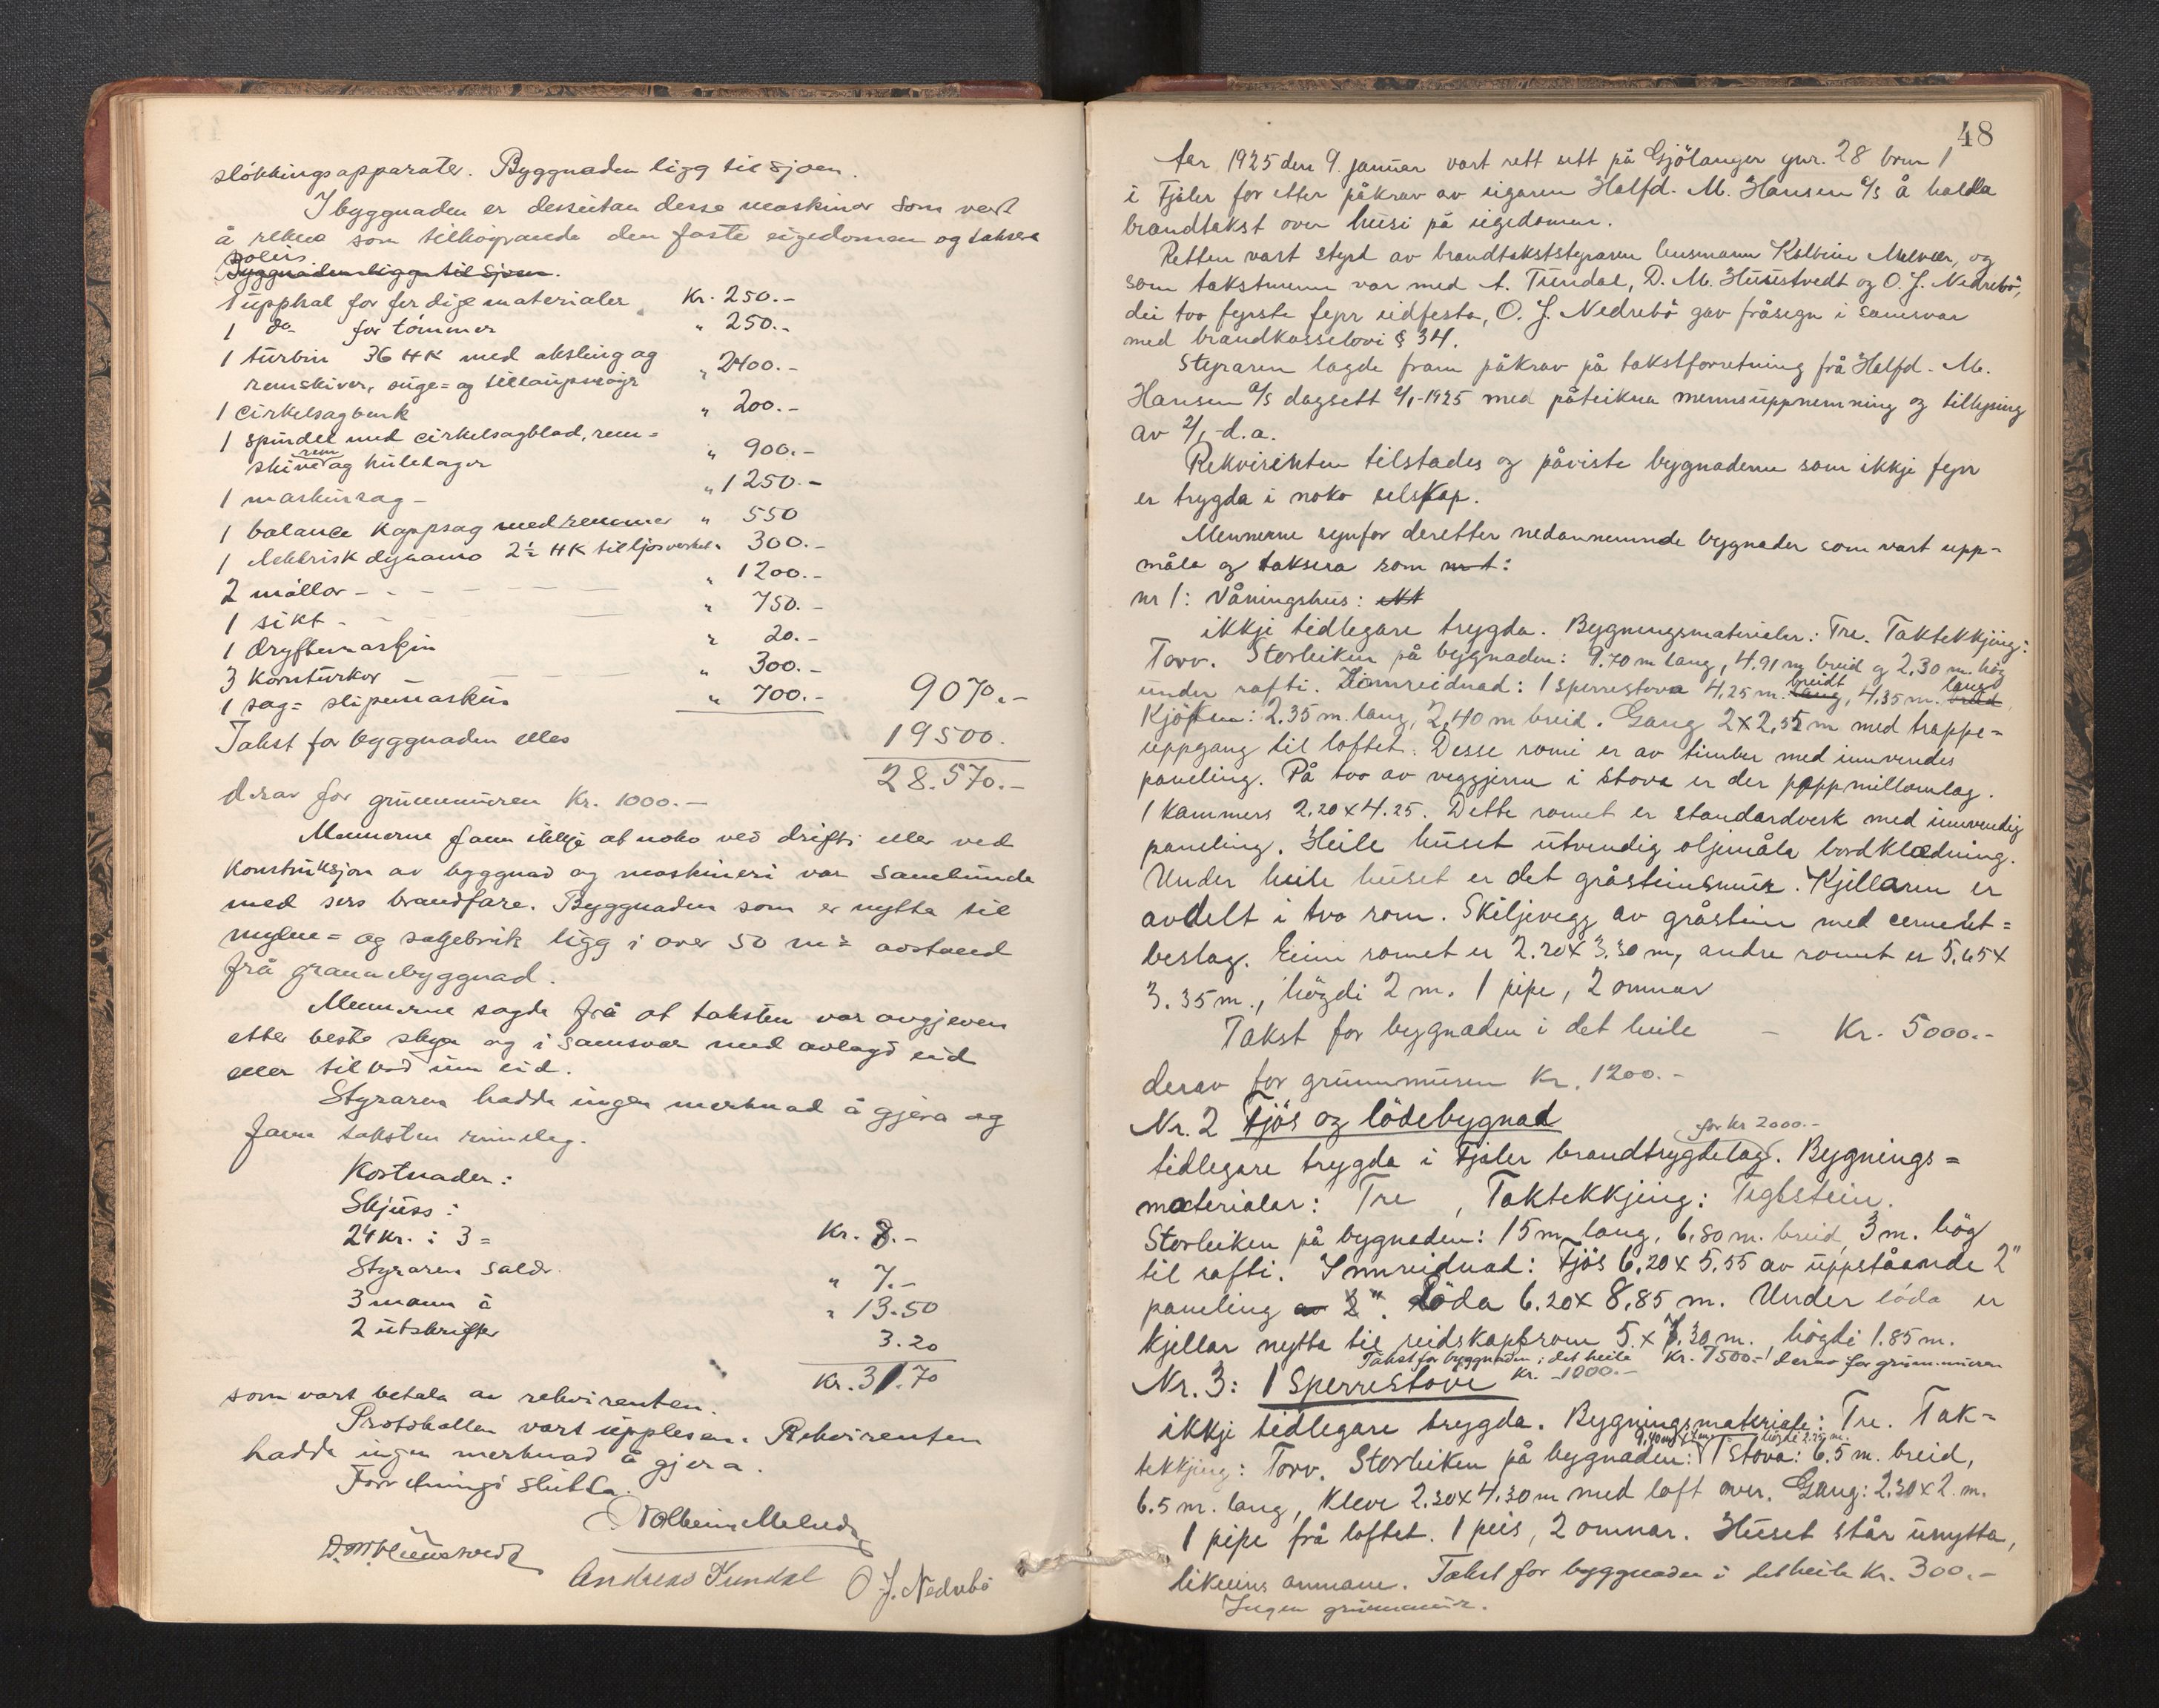 slökkingsapparater. Byggnaden ligg til sjöen.
I byggnaden er dessutan desse maskinor som vert
å rekna som tilhöyrande den faste eigedomen og taksera
soleis
Byggnaden ligg til sjöen.
1 upphal for ferdige materialer Kr. 250.-
1 do for tömmer " 250.-
1 turbin 36 HK med aksling og
remskiver, suge= og tillaupsröyr " 2400.-
1 cirkelsagbenk " 200.-
1 spindel med cirkelsagblad, rem=
skive rem og kulelager " 900.-
1 maskinsag - " 1250.-
1 balance kappsag med remmer " 550
1 elektrisk dynamo 2½ HK til ljosverket " 300.-
2 möllor - - - " 1200.-
1 sikt - - " 750.-
1 dryftemaskin " 20.-
3 kornturkor - " 300.-
1 sag= slipemaskin " 700.- 9070.-
Takst for byggnaden elles 19500.
28.570.-
derav for grunnmuren Kr. 1000.-
Mennerne fann ikkje at noko ved drifti eller ved
konstruksjon av byggnad og maskineri var sambunde
med sers brandfare. Byggnaden som er nytta til
mylne= og sagbruk ligg i over 50 m's avstand
frå grannebyggnad.
Mennerne sagde frå at taksten var avgjeven
etter beste skyn og i samsvar med avlagd eid
eller tilbod um eid.
Styraren hadde ingen merknad å gjera og
fann taksten rimeleg.
Kostnader:
Skjuss:
24 kr. : 3 = Kr. 8.-
Styraren salär " 7.-
3 mann à " 13.50
2 utskrifter 3.20
Kr. 31.70
som vart betala av rekvirenten.
Protokollen vart upplesen. Rekvirenten
hadde ingen merknad å gjera.
Forretningi slutta.
Kolbein Melvær
D. M. Hustvedt
Andreas Tundal O. J. Nedrebö
48
Aar 1925 den 9. januar vart rett sett på Gjölanger gnr. 28 brn 1
i Fjaler for etter påkrav av eigaren Halfd. M. Hansen A/S å halda
brandtakst over husi på eigedomen.
Retten vart styrd av brandtakststyraren lensmann Kolbein Melvær, og
som takstmenn var med A. Tundal, D. M. Hustvedt og O. J. Nedrebö,
dei tvo fyrste fyrr eidfesta, O. J. Nedrebö gav fråsegn i samsvar
med brandkasselovi § 34.
Styraren lagde fram påkrav på takstforretning frå Halfd. M.
Hansen A/S dagsett 2/1-1925 med påteikna mennsuppnemning og tillysing
av 2/1 d.a.
Rekvirenten tilstades og påviste bygnaderne som ikkje fyrr
er trygda i noko selskap.
Mennerne synfor deretter nedannemnde bygnader som vart upp=
måla og taksera som :
nr 1: Våningshus: ikk
ikkje tidlegare trygda. Bygningsmaterialer: Tre. Taktekkjing:
Torv. Storleiken på bygnaden: 9.70 m lang, 4.91 m breid og 2,30 m. hög
under rafti. Innreidnad: 1 sperrestova 4,25 m. lang breidt, 4,35 m. breid lang
Kjöken: 2.35 m. lang, 2,40 m breid. Gang 2x2,55 m med trappe=
uppgang til loftet. Desse romi er av timber med innvendes
paneling. På tvo av veggjerne i stova er der papp millomlag.
1 Kammers 2.20 x 4.25. Dette romet er standardverk med innvendig
paneling. Heile huset utvendig oljemåla bordklædning.
Under heile huset er det gråsteinsmur. Kjellaren er
avdelt i tvo rom. Skiljevegg av gråstein med cement=
beslag. Eine romet er 2.20 x 3.30 m, andre romet er 5,65 x
3.35 m., högdi 2 m. 1 pipe, 2 omnar
Takst for bygnaden i det heile - Kr. 5000.-
derav for grunnmuren Kr. 1200.-
Nr. 2 Fjös og lödebygnad
for kr 2000.-
tidlegare trygda i Fjaler brandtrygdelag. Bygnings=
materialar: Tre , Taktekkjing: Teglstein.
Storleiken på bygnaden: 15 m lang, 6,80 m. breid, 3 m. hög
til rafti. Innreidnad: Fjös 6,20 x 5,55 av uppståande 2"
paneling av 2". Löda 6.20 x 8,85 m. Under löda er
kjellar nytta til reidskapsrom 5. x 7,30 m. högdi 1.85 m.
Takst for byggnaden i det heile Kr. 7500.-, derav for grunnmuren
Kr. 1000.-
Nr. 3: 1 Sperrestove
ikkji tidlegare trygda. Bygningsmateriale: Tre. Tak=
9,40 m lang högdi 2,20 m.
tekkjing: Torv. Storleiken på bygnaden: 1 Stova: 6.5 m. breid,
6.5 m. lang, Kleve 2.30 x 4,30 m med loft over. Gang: 2.30 x 2. m.
1 pipe frå loftet. 1 peis, 2 omnar. Huset står unytta,
likeins omnane. Takst for byggnaden i det heile Kr. 300.-
Ingen grunnmur.